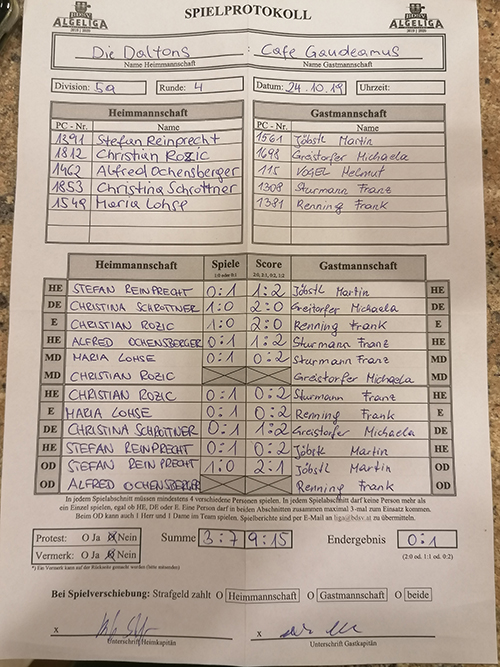 BDSV ALGELIGA 2019 | 2020 SPIELPROTOKOLL BDSV ALGELIGA 2019 | 2020
Die Daltons : Cafe Gaudeamus
Name Heimmannschaft Name Gastmannschaft
Division: 5a Runde: 4 Datum: 24.10.19 Uhrzeit:
Heimmannschaft Gastmannschaft
PC - Nr. Name PC - Nr. Name
1391 Stefan Reinprecht 1561 Jöbstl Martin
1812 Christian Rozic 1698 Greistorfer Michaela
1462 Alfred Ochensberger 115 VOGEL Helmut
1853 Christina Schrottner 1308 Sturmann Franz
1549 Maria Lohse 1381 Renning Frank
Heimmannschaft Spiele Score Gastmannschaft
1:0 oder 0:1 2:0, 2:1, 0:2, 1:2
HE STEFAN REINPRECHT 0:1 1:2 Jöbstl Martin HE
DE CHRISTINA SCHROTTNER 1:0 2:0 Greitorfer Michaela DE
E CHRISTIAN ROZIC 1:0 2:0 Renning Frank E
HE ALFRED OCHENSBERGER 0:1 1:2 Sturmann Franz HE
MD MARIA LOHSE 0:1 0:2 Sturmann Franz MD
MD CHRISTIAN ROZIC Greistorfer Michaela MD
HE CHRISTIAN ROZIC 0:1 0:2 Sturmann Franz HE
E MARIA LOHSE 0:1 0:2 Renning Frank E
DE CHRISTINA SCHROTTNER 0:1 1:2 Greistorfer Michaela DE
HE STEFAN REINPRECHT 0:1 0:2 Jöbstl Martin HE
OD STEFAN REINPRECHT 1:0 2:1 Jöbstl Martin OD
OD ALFRED OCHENSBERGER Renning Frank OD
In jedem Spielabschnitt müssen mindestens 4 verschiedene Personen spielen. In jedem Spielabschnitt darf keine Person mehr als
ein Einzel spielen, egal ob HE, DE oder E. Eine Person darf in beiden Abschnitten zusammen maximal 3-mal zum Einsatz kommen.
Beim OD kann auch 1 Herr und 1 Dame im Team spielen. Spielberichte sind per E-Mail an liga@bdsv.at zu übermitteln.
Protest: O Ja O Nein Summe 3:7 9:15 Endergebnis 0:1
Vermerk: O Ja O Nein (2:0 od. 1:1 od. 0:2)
*) Ein Vermerk kann auf der Rückseite gemacht werden (bitte ankreuzen)
Bei Spielverschiebung: Strafgeld zahlt O Heimmannschaft O Gastmannschaft O beide
x x
Unterschrift Heimkapitän Unterschrift Gastkapitän